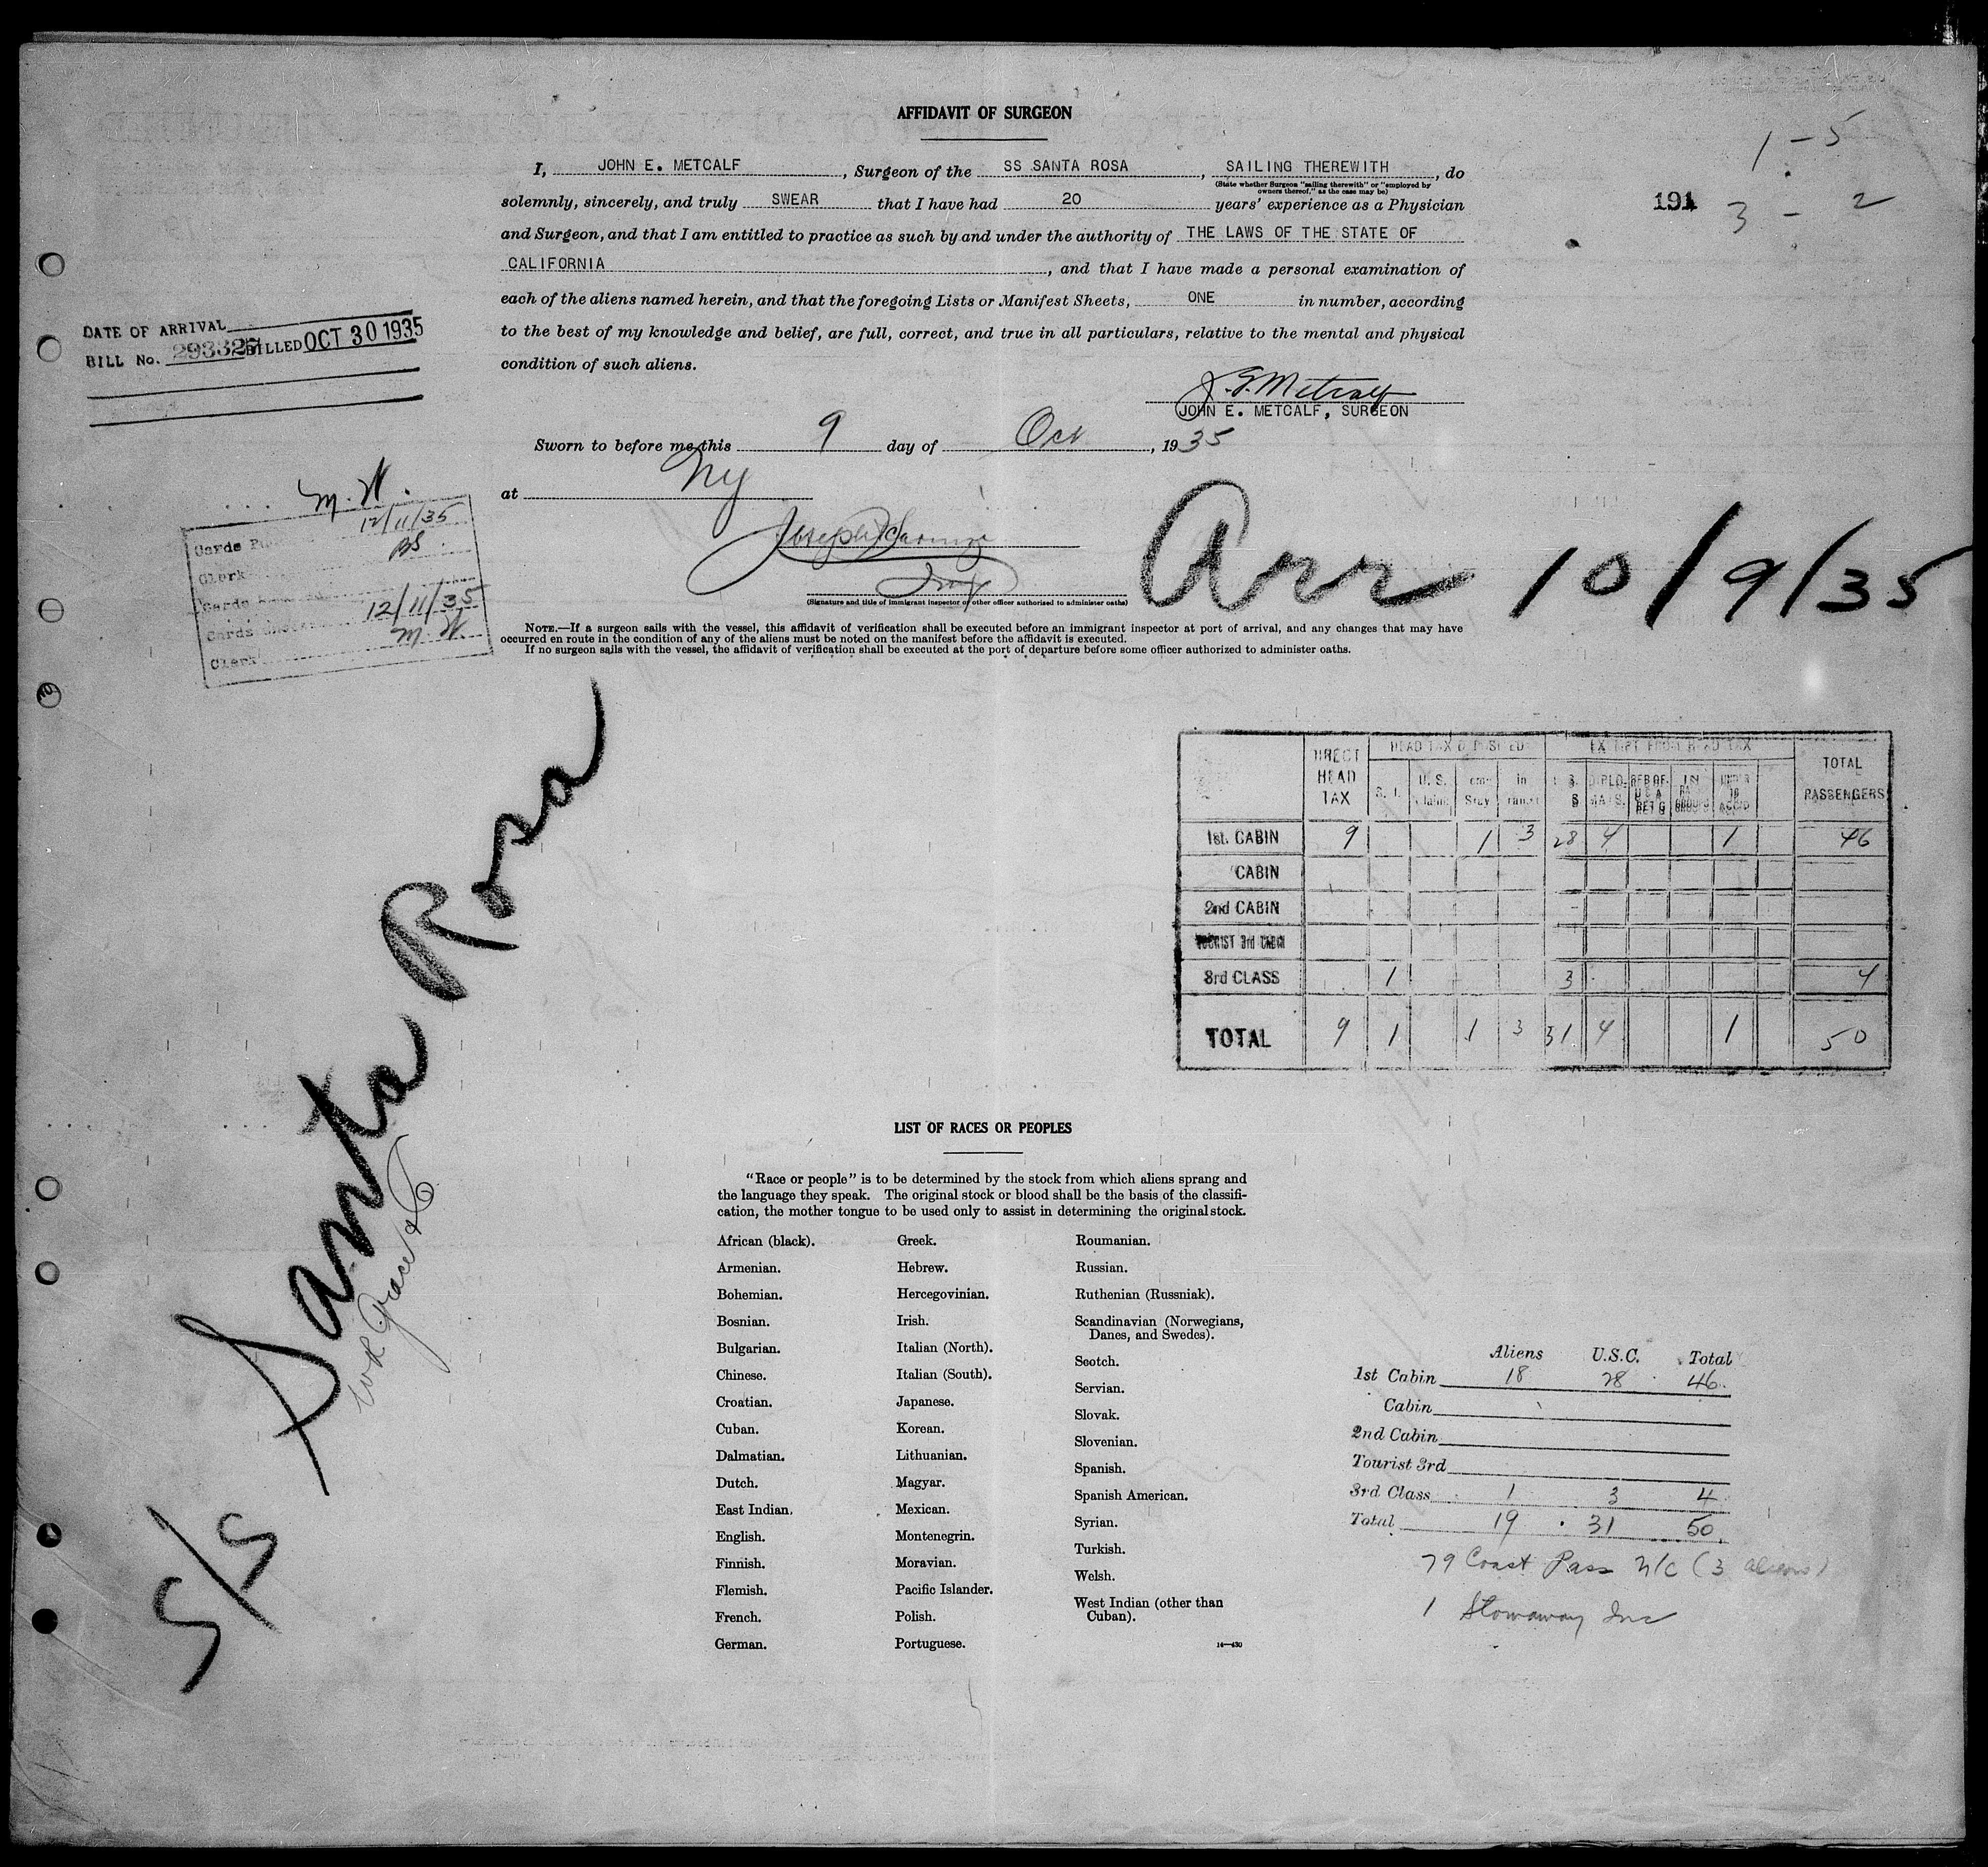 AFFIDAVIT OF SURGEON
I, JOHN E. METCALF, Surgeon of the SS SANTA ROSA, SAILING THEREWITH, do
(State whether Surgeon "sailing therewith" or "employed by owners thereof," as the case may be)
solemnly, sincerely, and truly SWEAR that I have had 20 years' experience as a Physician
and Surgeon, and that I am entitled to practice as such by and under the authority of THE LAWS OF THE STATE OF
CALIFORNIA, and that I have made a personal examination of
each of the aliens named herein, and that the foregoing Lists or Manifest Sheets, ONE in number, according
to the best of my knowledge and belief, are full, correct, and true in all particulars, relative to the mental and physical
condition of such aliens.
J.E. Metcalf
JOHN E. METCALF, SURGEON
Sworn to before me this 9 day of Oct, 1935
at NY
Joseph
Insp
(Signature and title of immigrant inspector or other officer authorized to administer oaths)
NOTE.—If a surgeon sails with the vessel, this affidavit of verification shall be executed before an immigrant inspector at port of arrival, and any changes that may have
occurred en route in the condition of any of the aliens must be noted on the manifest before the affidavit is executed.
If no surgeon sails with the vessel, the affidavit of verification shall be executed at the port of departure before some officer authorized to administer oaths.
1 - 5
191 3 - 2
DATE OF ARRIVAL
BILL No. 293325 BILLED OCT 30 1935
M. W.
12/11/35
Cards
BS
Clerk
Cards
12/11/35
Cards
M. W
Clerk
Arr 10/9/35
S/S Santa Rosa
WR Grace & Co
DIRECT HEAD TAX
HEAD TAX DEPOSITED
EXEMPT FROM HEAD TAX
TOTAL PASSENGERS
S. I. U. S. Claim Stay in DIPLOMATS UNDER 16
1st. CABIN 9 1 3 28 4 1 46
CABIN
2nd CABIN
TOURIST 3rd CABIN
3rd CLASS 1 3 4
TOTAL 9 1 1 3 31 4 1 50
LIST OF RACES OR PEOPLES
"Race or people" is to be determined by the stock from which aliens sprang and
the language they speak. The original stock or blood shall be the basis of the classifi-
cation, the mother tongue to be used only to assist in determining the original stock.
African (black).
Armenian.
Bohemian.
Bosnian.
Bulgarian.
Chinese.
Croatian.
Cuban.
Dalmatian.
Dutch.
East Indian.
English.
Finnish.
Flemish.
French.
German.
Greek.
Hebrew.
Hercegovinian.
Irish.
Italian (North).
Italian (South).
Japanese.
Korean.
Lithuanian.
Magyar.
Mexican.
Montenegrin.
Moravian.
Pacific Islander.
Polish.
Portuguese.
Roumanian.
Russian.
Ruthenian (Russniak).
Scandinavian (Norwegians,
Danes, and Swedes).
Scotch.
Servian.
Slovak.
Slovenian.
Spanish.
Spanish American.
Syrian.
Turkish.
Welsh.
West Indian (other than
Cuban).
14—430
Aliens U.S.C. Total
1st Cabin 18 28 46
Cabin
2nd Cabin
Tourist 3rd
3rd Class 1 3 4
Total 19 31 50
79 Coast Pass N/C (3 aliens)
1 Stowaway Inc